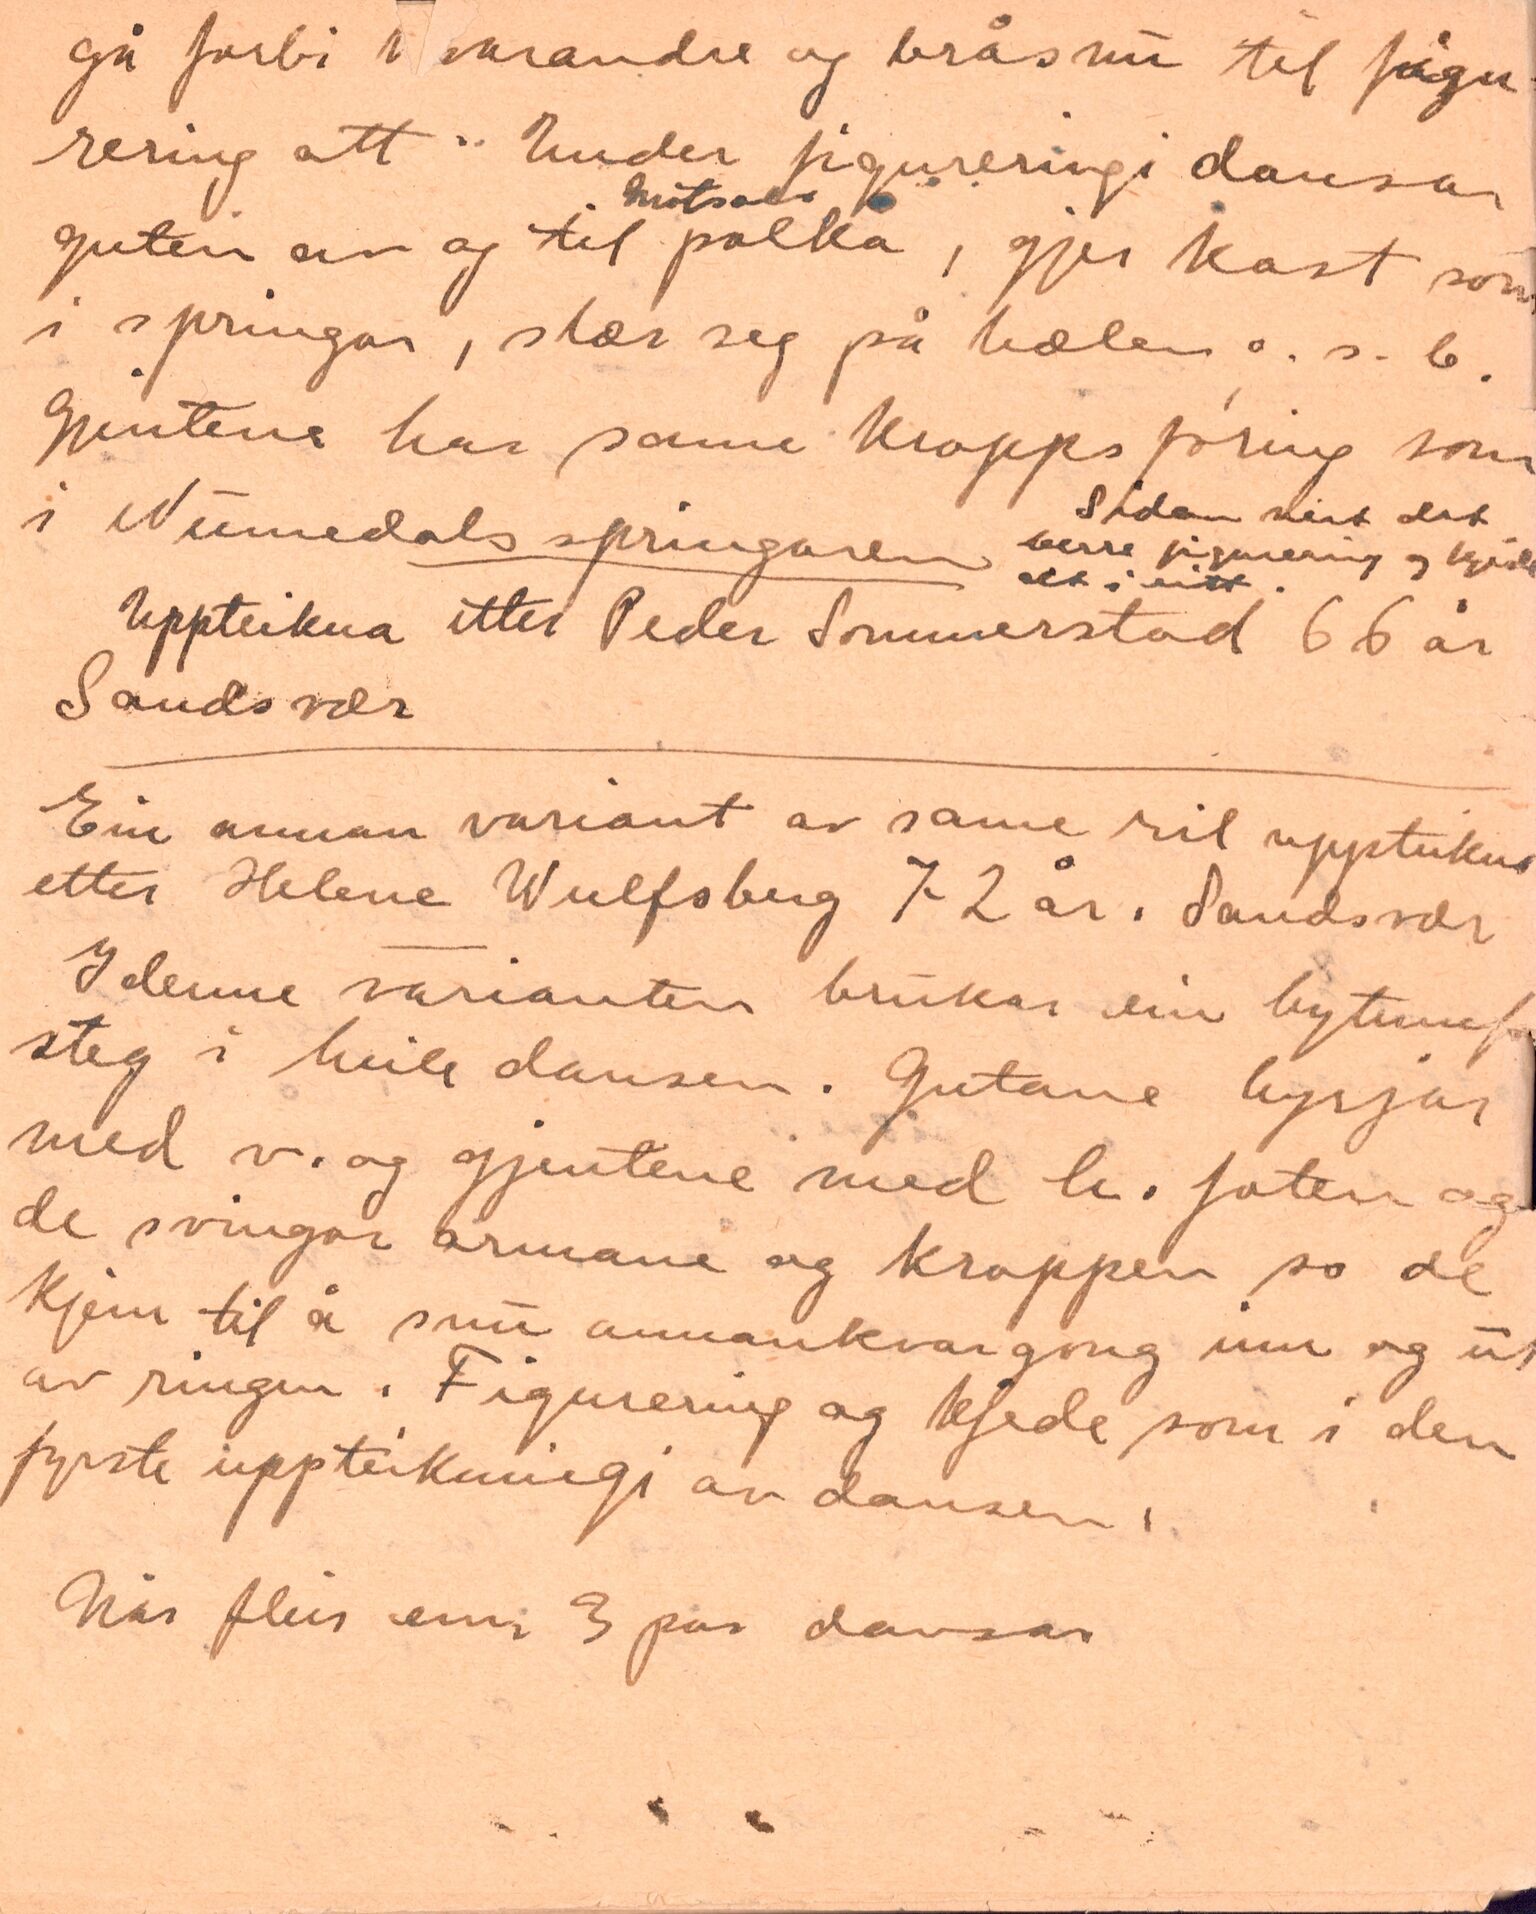 gå forbi kvarandre og bråsnu til figu-
rering att ". Under figureringi dansar
motsols
guten av og til polka, gjer kast som
i springar, slær seg på hælen o. s. b.
Gjentene har same kroppsføring som
i Numedalsspringaren
Sidan vert det
berre figurering og kjede
alt i eitt.
Uppteikna etter Peder Sommerstad 66 år
Sandsvær
Ein annan variant av same ril uppteikna
etter Helene Wulfsberg 72 år. Sandsvær
I denne varianten brukar ein bytumfo
steg i heile dansen. Gutane byrjar
med v. og gjentene med h. foten og
de svingar armane og kroppen so de
kjem til å snu annankvar gong inn og ut
av ringen. Figurering og kjede som i den
fyrste uppteikningi av dansen.
Når fleir enn 3 par dansar